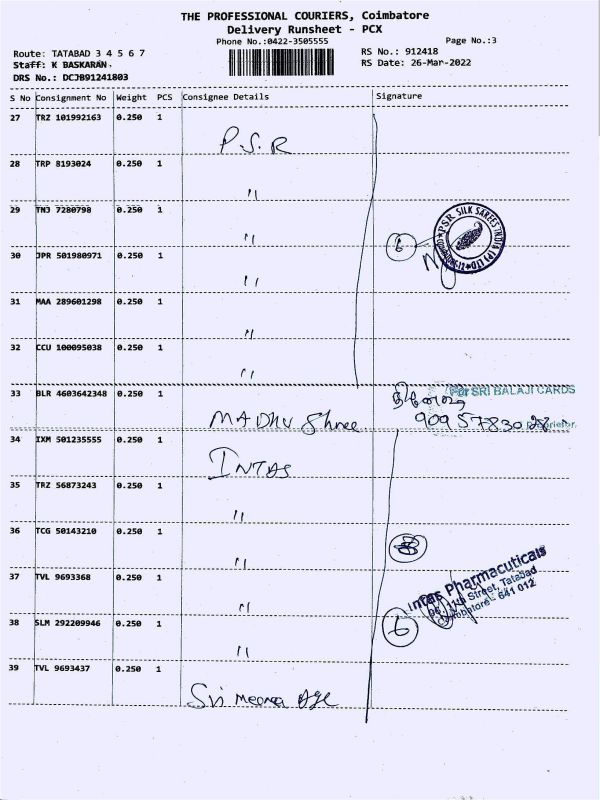 THE PROFESSIONAL COURIERS, Coimbatore
Delivery Runsheet - PCX
Phone No.:0422-3505555
Page No.:3
Route: TATABAD 3 4 5 6 7
RS No.: 912418
Staff: K BASKARAN.
RS Date: 26-Mar-2022
DRS No.: DCJB91241803
S No Consignment No Weight PCS Consignee Details Signature
27 TRZ 101992163 0.250 1
P.S.R
28 TRP 8193024 0.250 1
"
29 TNJ 7280798 0.250 1
"
PSR SILK SAREES INDIA (P) LTD
6
30 JPR 501980971 0.250 1
"
31 MAA 289601298 0.250 1
"
32 CCU 100095038 0.250 1
"
33 BLR 4603642348 0.250 1
For SRI BALAJI CARDS
MADHU Shree
Proprietor
34 IXM 501235555 0.250 1
INTAS
35 TRZ 56873243 0.250 1
"
36 TCG 50143210 0.250 1
"
37 TVL 9693368 0.250 1
"
Intas Pharmacuticals
11th Street, Tatabad
Coimbatore - 641 012
6
38 SLM 292209946 0.250 1
"
39 TVL 9693437 0.250 1
Sri meena Age